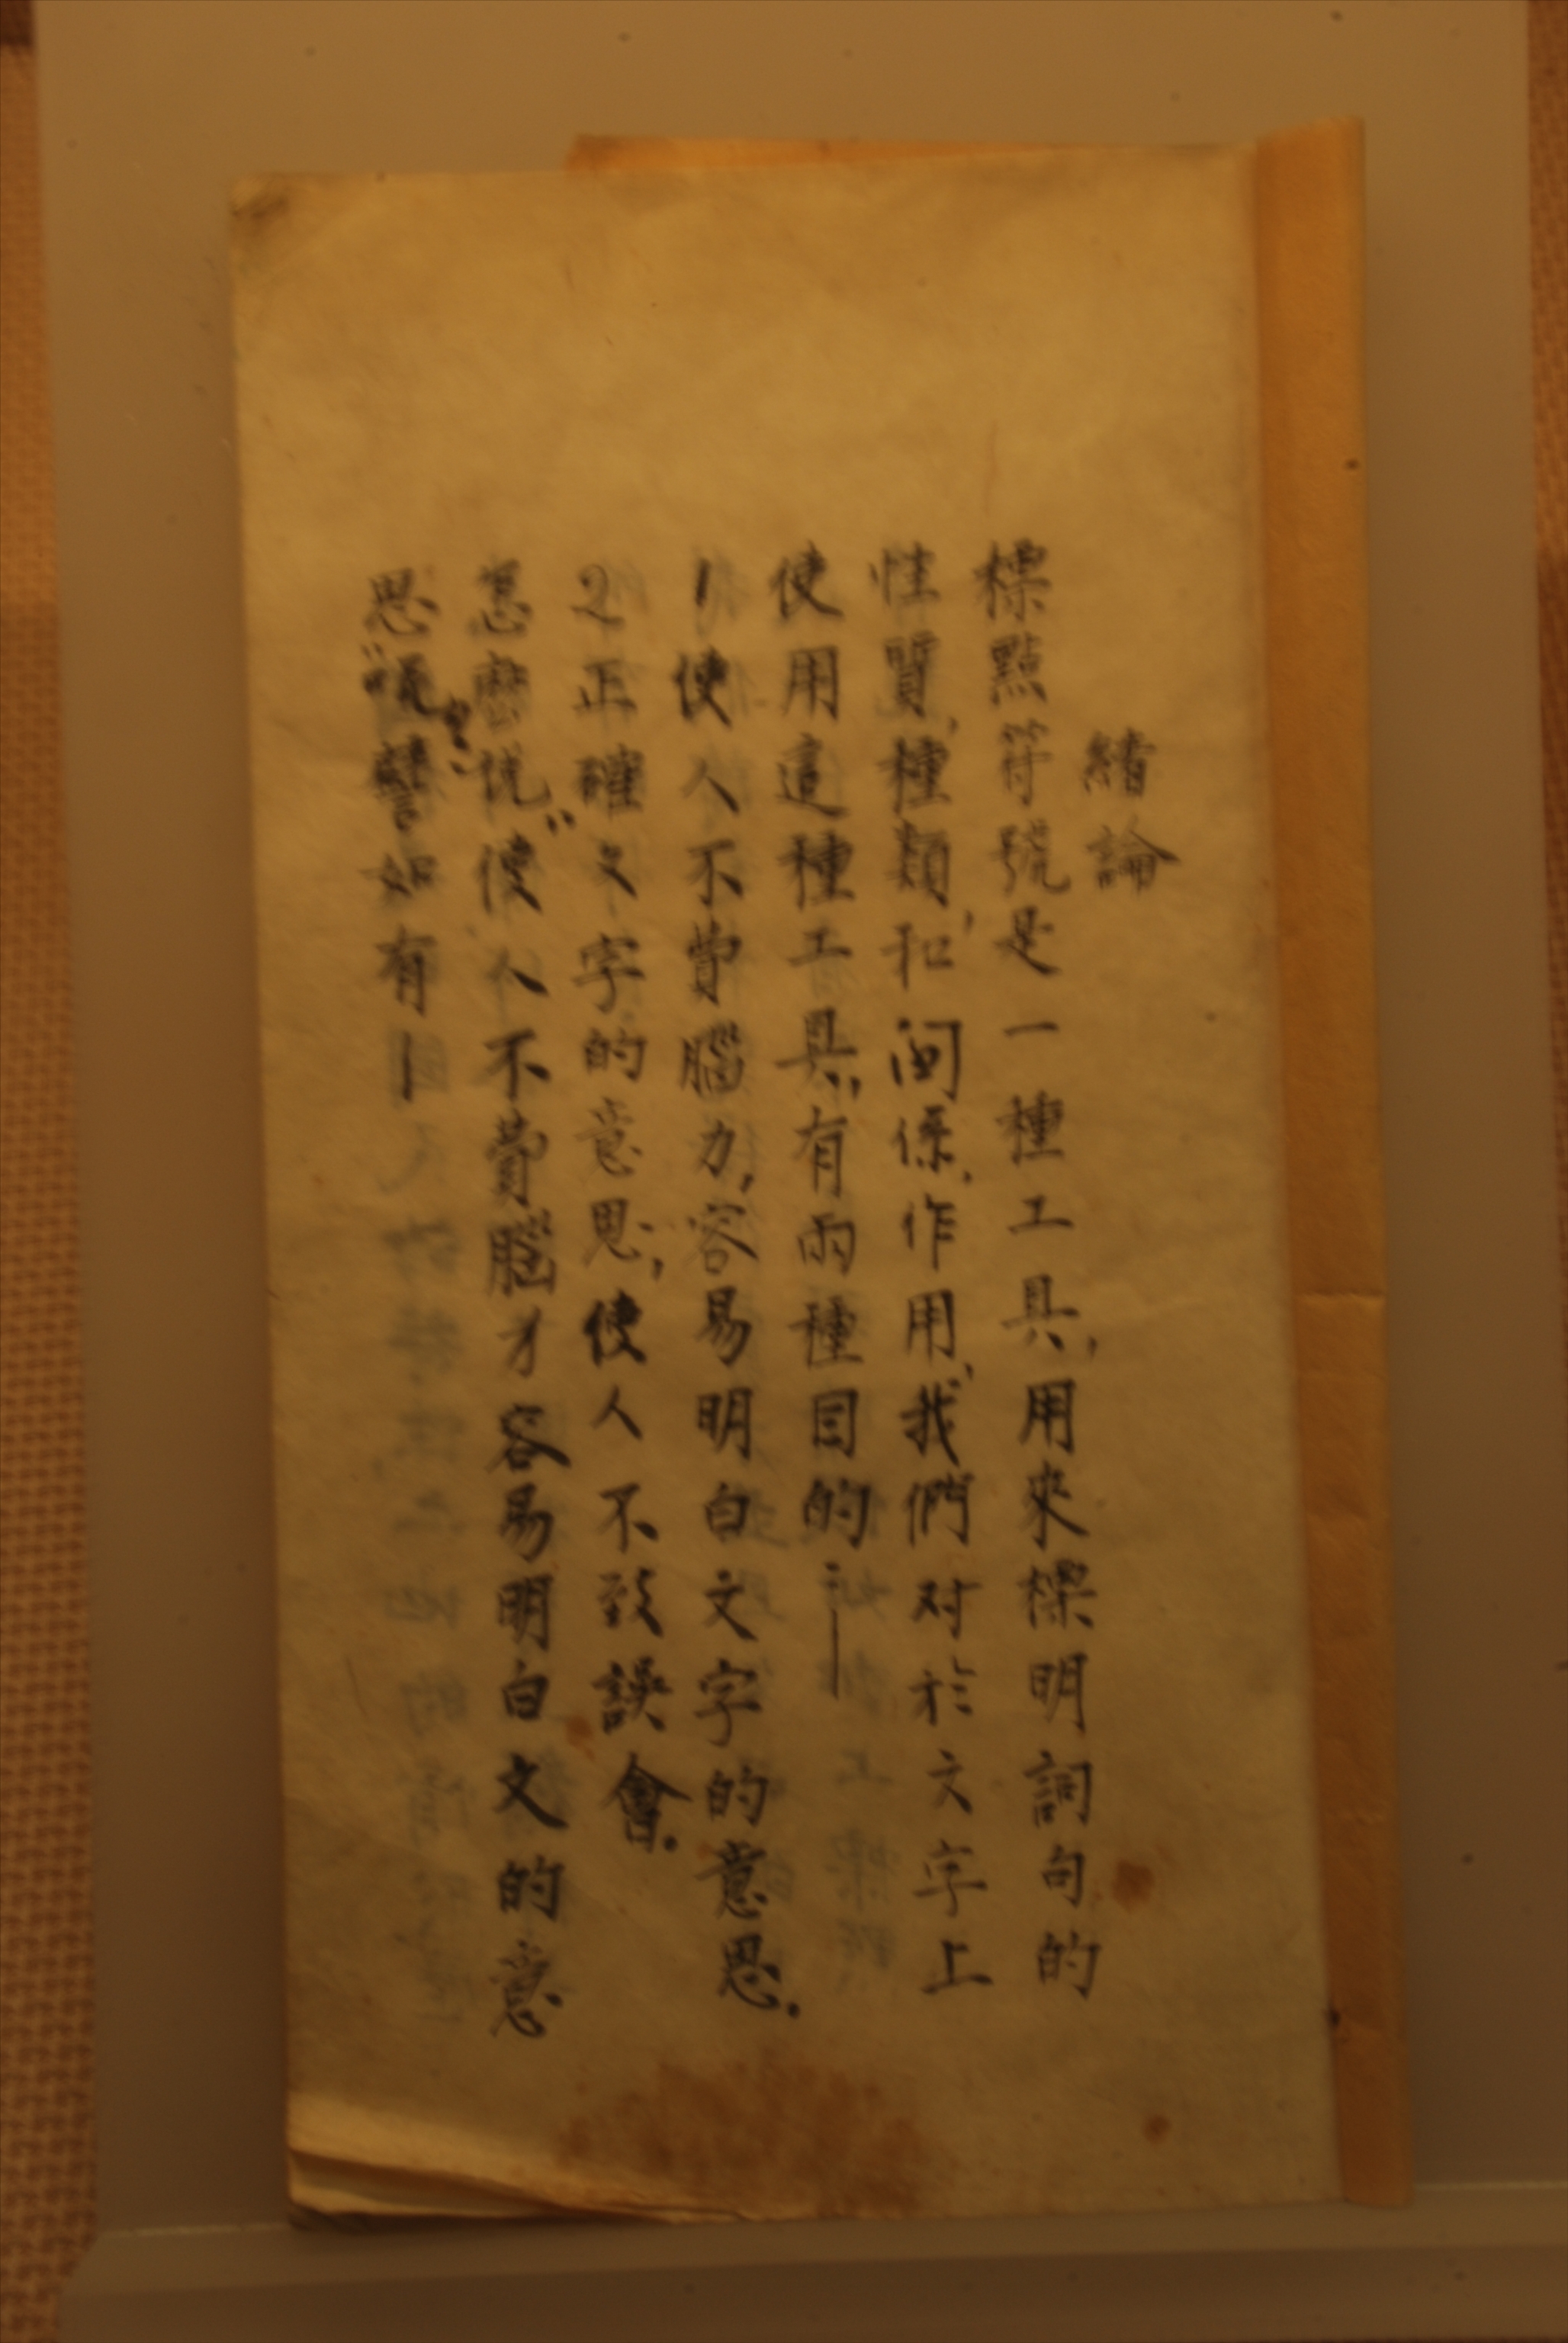 緒論
標點符號是一種工具,用來標明詞句的
性質,種類,和関係,作用,我們对於文字上
使用這種工具,有兩種目的:—
1使人不費腦力,容易明白文字的意思.
2正確文字的意思,使人不致誤會.
怎麽说“使人不費腦才容易明白文的意
思”呢?譬如有—